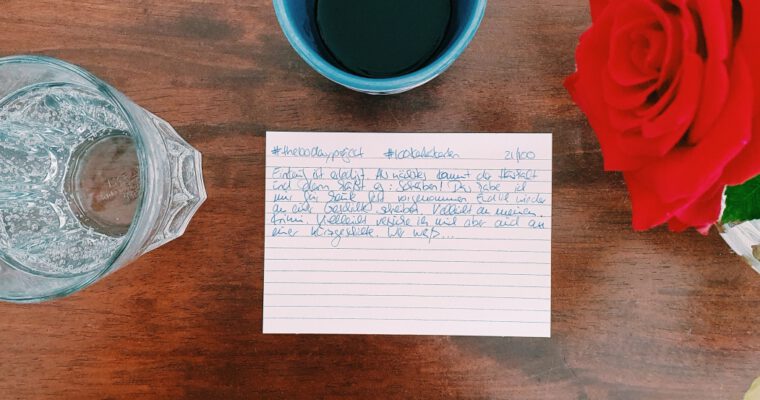 #the100dayproject #100karteikarten 21/100
Einkauf ist erledigt. Als nächstes kommt der Haushalt
und dann heißt es: Schreiben! Das habe ich
mir für heute fest vorgenommen. Endlich wieder
an einer Geschichte schreiben. Vielleicht an meinem
Krimi. Vielleicht versuche ich mich aber auch an
einer Kurzgeschichte. Wer weiß...